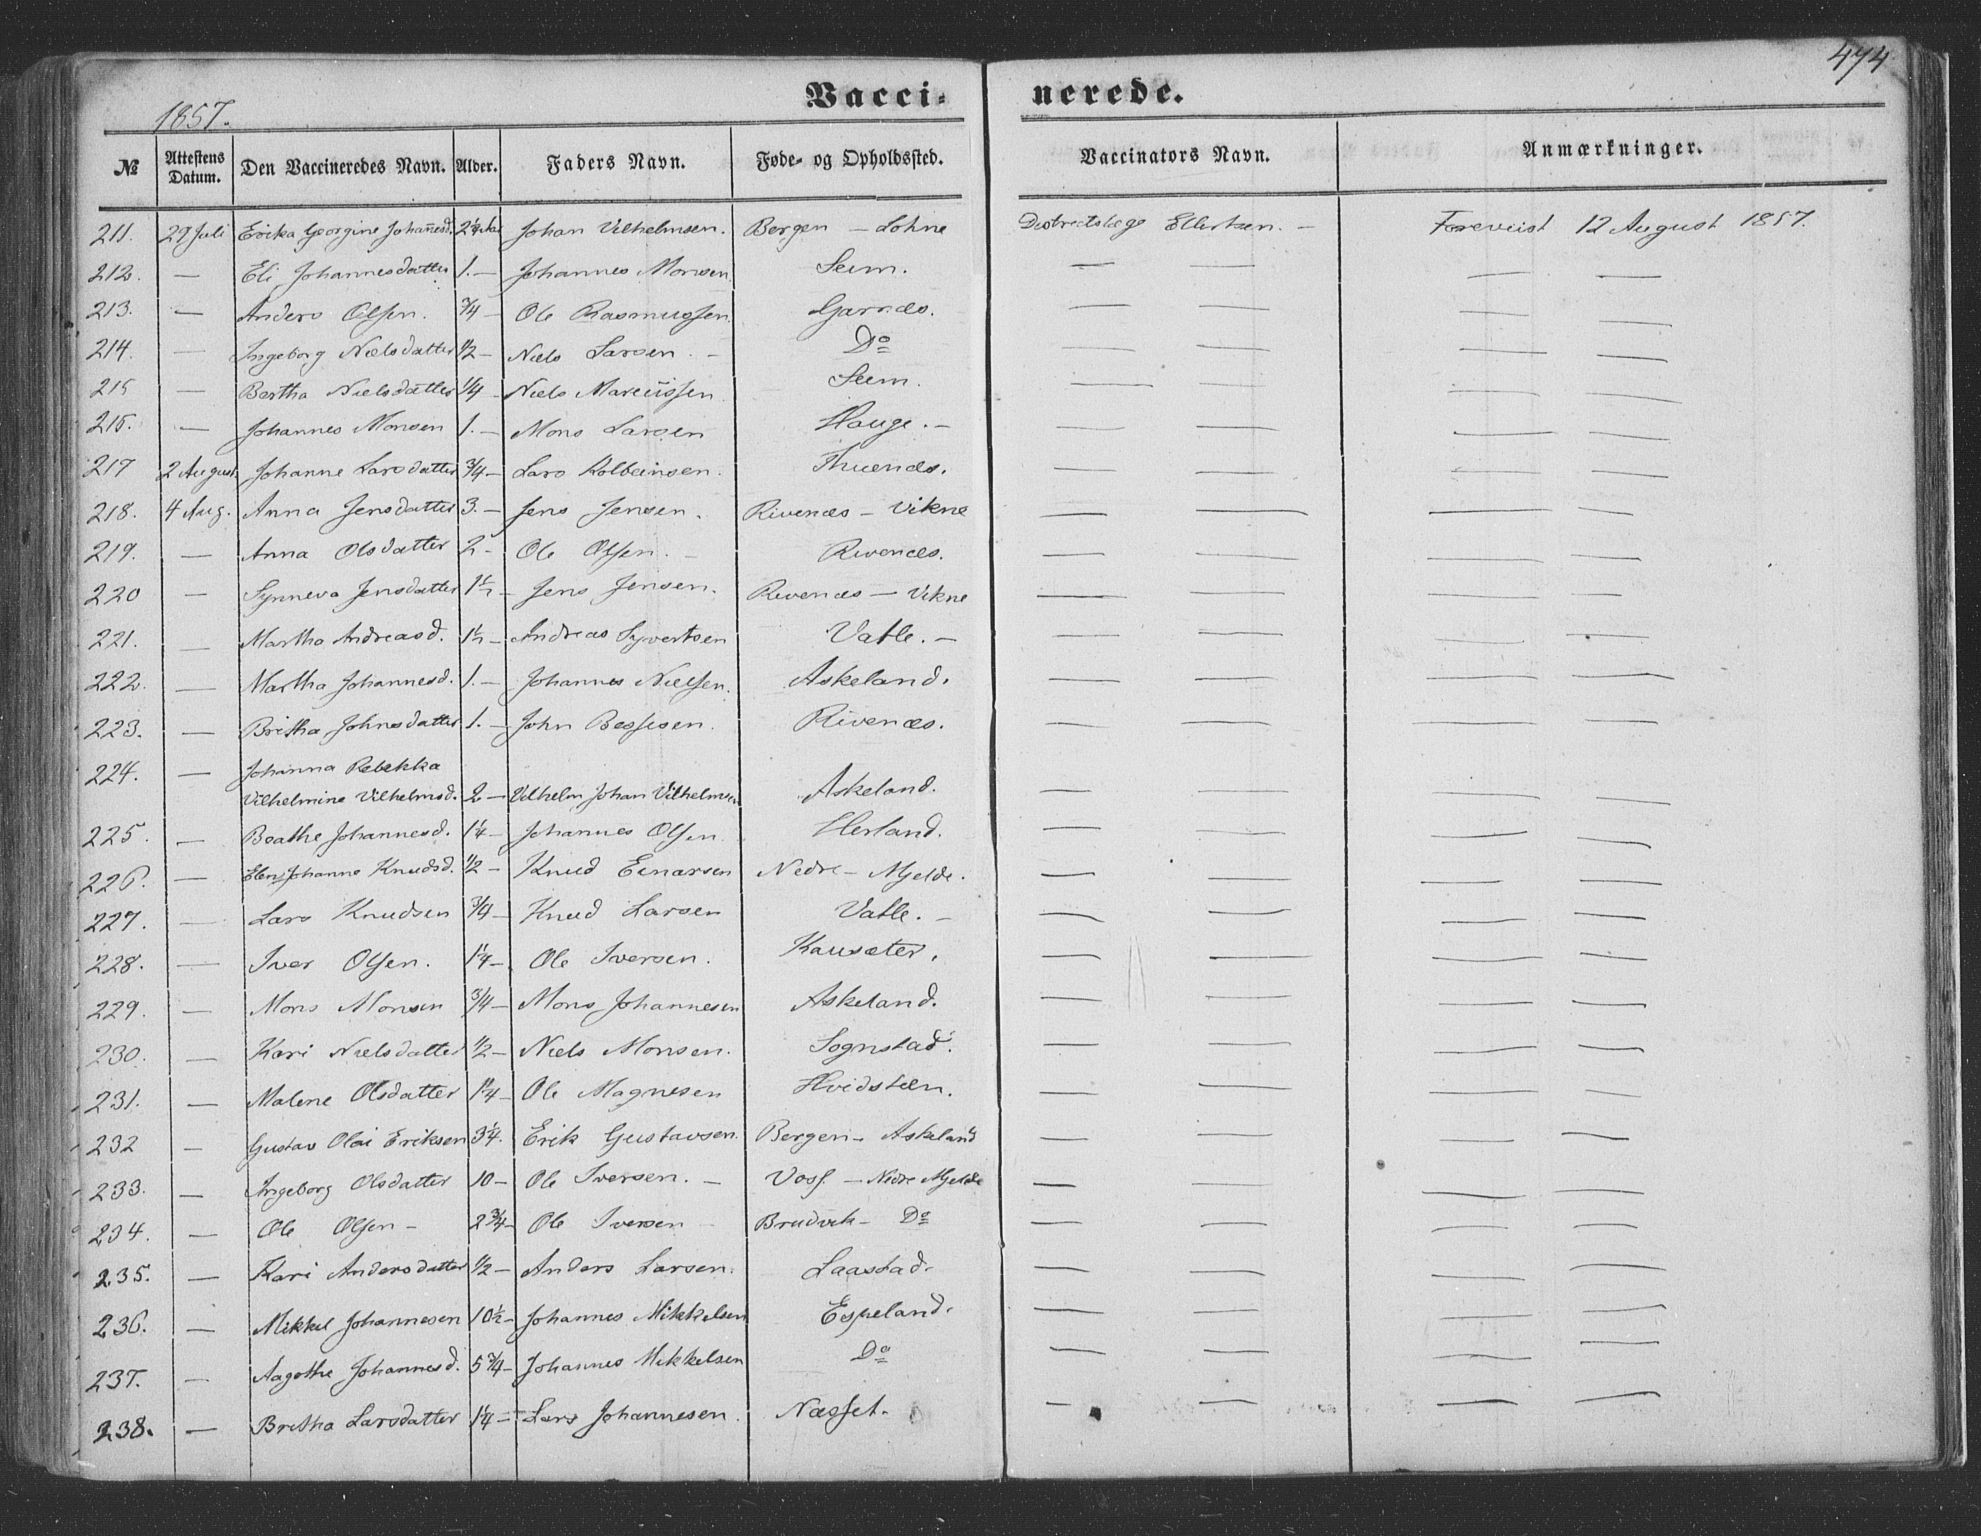 474
1857.
Vacci- nerede.
№ Attestens Datum. Den Vaccineredes Navn. Alder. Faders Navn. Føde- og Opholdssted. Vaccinators Navn. Anmærkninger.
211. 29 Juli Erika Georgine Johañesd. 2 1/4 Aar Johan Vilhelmsen. Bergen — Lohne Districtslæge Ellertsen. — Foreviist 12 August 1857.
212. — Eli Johannesdatter 1. — Johannes Monsen Seim. — — — —
213. — Anders Olsen. 3/4 — Ole Rasmussen. Garnæs. — — — —
214. — Ingeborg Nielsdatter 1/2 — Niels Larsen. — Do — — — —
215 — Bertha Nielsdatter 1/4 — Niels Marcussen Seim. — — — —
215. — Johannes Monsen 1. — Mons Larsen Hauge. — — — — —
217 2 August Johanne Larsdatter 3/4 — Lars Kolbeinsen. Thuenæs. — — — —
218. 4 Aug. Anna Jensdatter 3. — Jens Jensen. Rivenæs — Vikne — — — —
219. — Anna Olsdatter 2 — Ole Olsen. — Rivenæs. — — — —
220 — Synneva Jensdatter 1 1/2 — Jens Jensen. Rivenæs — Vikne — — — —
221. — Martha Andreasd. 1 1/2 — Andreas Syvertsen Vatle. — — — — —
222. — Martha Johannesd. 1. — Johannes Nielsen. Askeland. — — — —
223. — Britha Johnsdatter 1. — John Bessesen. Rivenæs. — — — —
224. — Johanna Rebekka
Vilhelmine Vilhelmsd. 2 — Vilhelm Johan Vilhelmsen Askeland. — — — —
225. — Beathe Johannesd. 1 1/4 — Johannes Olsen. Herland. — — — —
226. — Elen Johanne Knudsd. 1/2 — Knud Einarsen Nedre — Mjelde. — — — —
227. — Lars Knudsen 3/4 — Knud Larsen Vatle. — — — — —
228. — Iver Olsen. 1 1/4 —. Ole Iversen. Kausæter. — — — —
229. — Mons Monsen 3/4 — Mons Johannesen Askeland. — — — —
230. — Kari Nielsdatter 1/2 — Niels Monsen. Sognstad. — — — —
231. — Malene Olsdatter 1 1/4 — Ole Magnesen Hvidsteen. — — — —
232 — Gustav Olai Eriksen 3 1/4. Erik Gustavsen. Bergen — Askeland — — — —
233. — Ingeborg Olsdatter 10 — Ole Iversen. — Voss. — Nedre Mjelde — — — —
234. — Ole Olsen — 2 3/4 — Ole Iversen — Brudvik — Do — — — —
235. — Kari Andersdatter 1/2 — Anders Larsen. Laastad. — — — —
236. — Mikkel Johannesen 10 1/2 — Johannes Mikkelsen Espeland. — — — —
237. — Aagothe Johannesd. 5 3/4 — Johannes Mikkelsen Do — — — —
238. — Britha Larsdatter 1 1/4 — Lars Johannesen. Næsset. — — — —